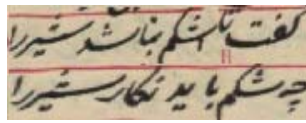 گفت تا اشکم نباشد شیررا
چه شکم باید نگار شیررا